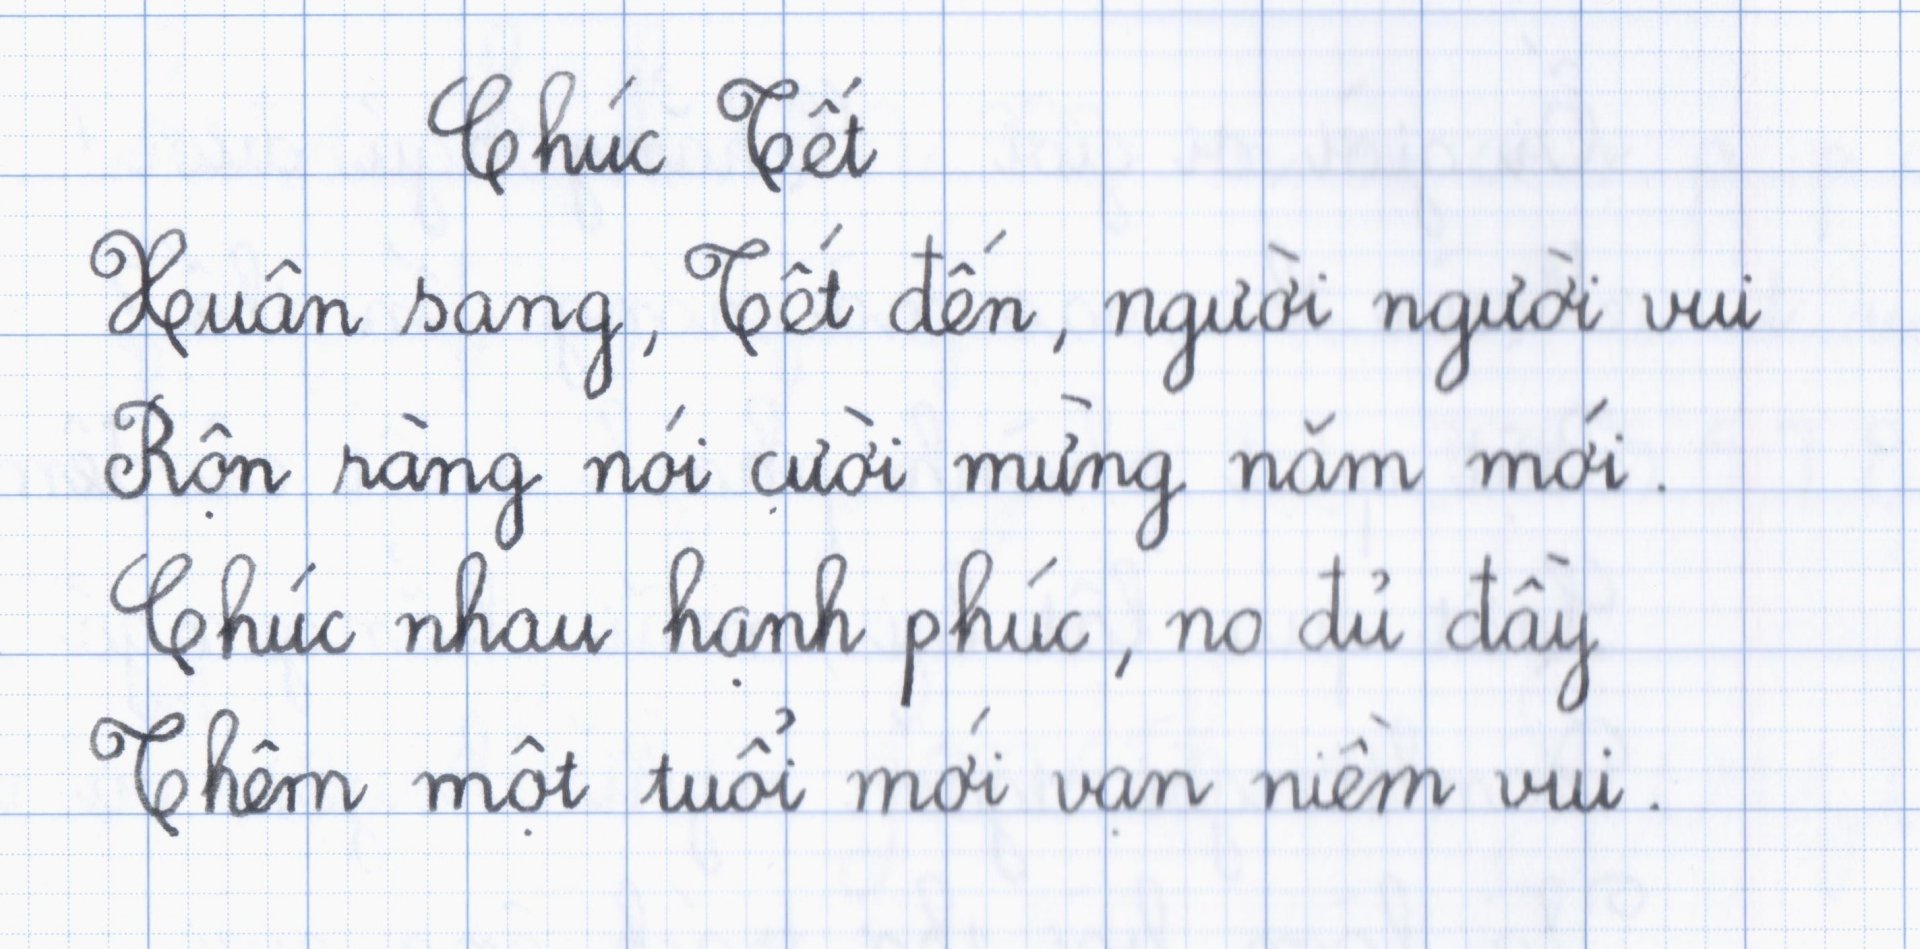 Chúc Tết
Xuân sang, Tết đến, người người vui
Rộn ràng nói cười mừng năm mới.
Chúc nhau hạnh phúc, no đủ đầy
Thêm một tuổi mới vạn niềm vui.